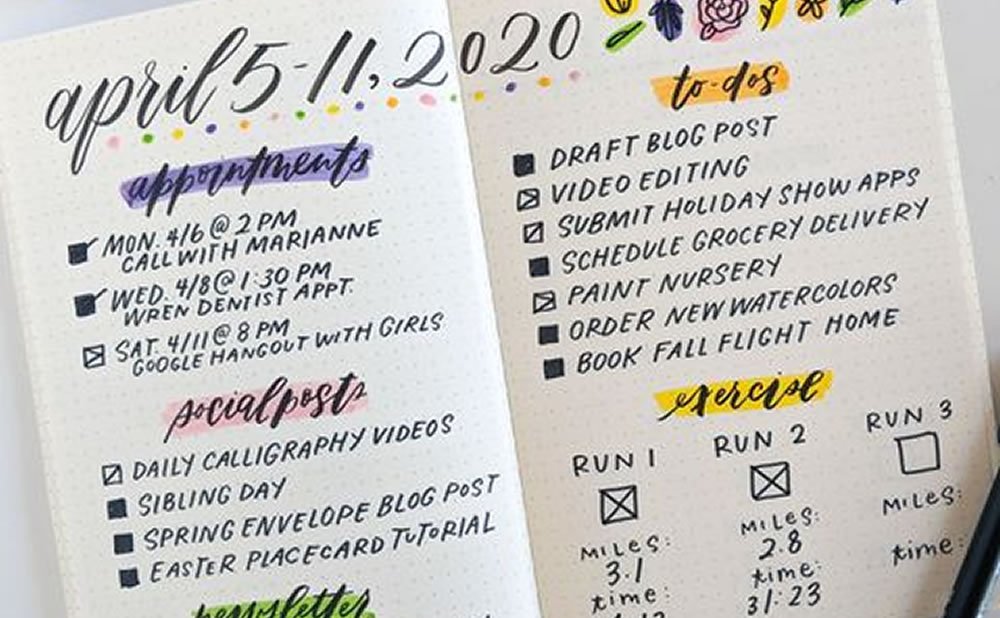 april 5-11, 2020
appointments
MON. 4/6 @ 2 PM
CALL WITH MARIANNE
WED. 4/8 @ 1:30 PM
WREN DENTIST APPT.
SAT. 4/11 @ 8 PM
GOOGLE HANGOUT WITH GIRLS
social posts
DAILY CALLIGRAPHY VIDEOS
SIBLING DAY
SPRING ENVELOPE BLOG POST
EASTER PLACECARD TUTORIAL
newsletter
to-dos
DRAFT BLOG POST
VIDEO EDITING
SUBMIT HOLIDAY SHOW APPS
SCHEDULE GROCERY DELIVERY
PAINT NURSERY
ORDER NEW WATERCOLORS
BOOK FALL FLIGHT HOME
exercise
RUN 1 RUN 2 RUN 3
MILES: MILES: MILES:
3.1 2.8
time: time: time:
31:23